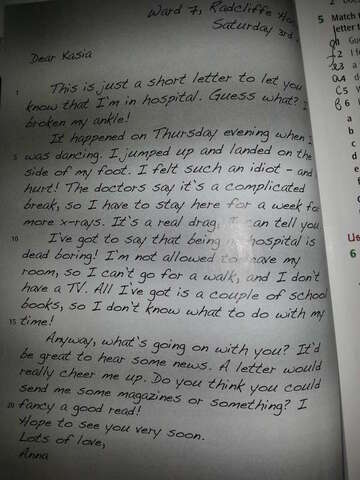 Ward 7, Radcliffe
Saturday 3rd
Dear Kasia
This is just a short letter to let you
know that I'm in hospital. Guess what? I
broken my ankle!
It happened on Thursday evening when I
5 was dancing. I jumped up and landed on the
side of my foot. I felt such an idiot – and
hurt! The doctors say it's a complicated
break, so I have to stay here for a week for
more x-rays. It's a real drag, I can tell you
10 I've got to say that being in hospital is
dead boring! I'm not allowed to leave my
room, so I can't go for a walk, and I don't
have a TV. All I've got is a couple of school
books, so I don't know what to do with my
15 time!
Anyway, what's going on with you? It'd
be great to hear some news. A letter would
really cheer me up. Do you think you could
send me some magazines or something? I
20 fancy a good read!
Hope to see you very soon.
Lots of love,
Anna
5 Match
letter
1
2
3
4
5
6
a
b
c
d
e
f
6